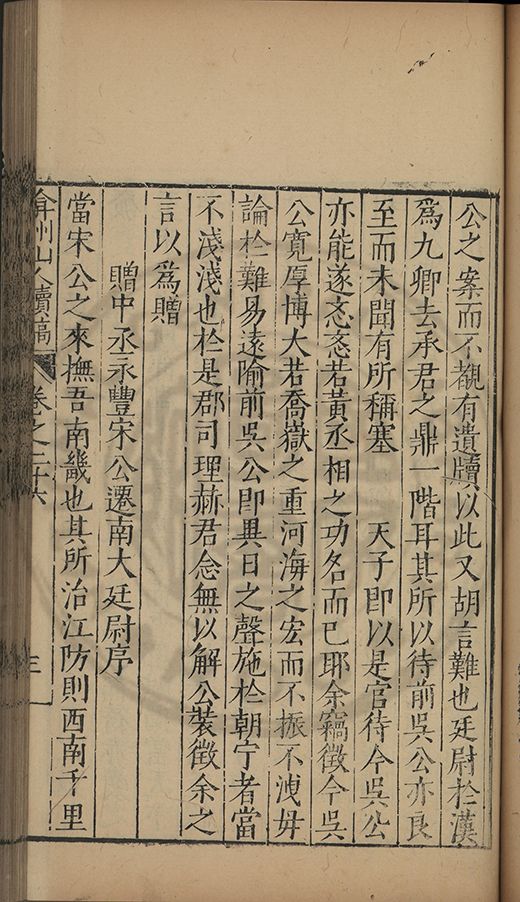 公之案而不覩有遺牘以此又胡言難也廷尉於漢
爲九卿去承君之鼎一階耳其所以待前吳公亦良
至而未聞有所稱塞　天子即以是官待今吳公
亦能遂忞忞若黃丞相之功名而已耶余竊徵今吳
公寬厚博大若喬嶽之重河海之宏而不振不洩毋
論於難易遠喻前吳公即異日之聲施於朝宁者當
不淺淺也於是郡司理赫君念無以解公裝徵余之
言以爲贈
贈中丞永豐宋公遷南大廷尉序
當宋公之來撫吾南畿也其所治江防則西南千里
弇州山人續稿
卷之二十六
三